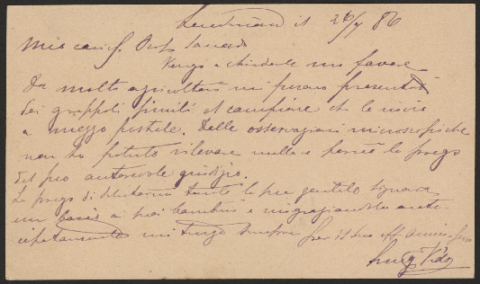 li 26/7 86
Mio caro Prof. Saccardo
Vengo a chiederle un favore
Da molti agricoltori mi furono presentati
dei grappoli simili al campione che le invio
a mezzo postale. Dalle osservazioni microscopiche
non ho potuto rilevare nulla e perciò la prego
del suo autorevole giudizio.
La prego di tanto la sua gentile Signora
un bacio ai suoi bambini e ringraziandola anti-
cipatamente mi tengo sempre per il suo aff. amico
Luigi